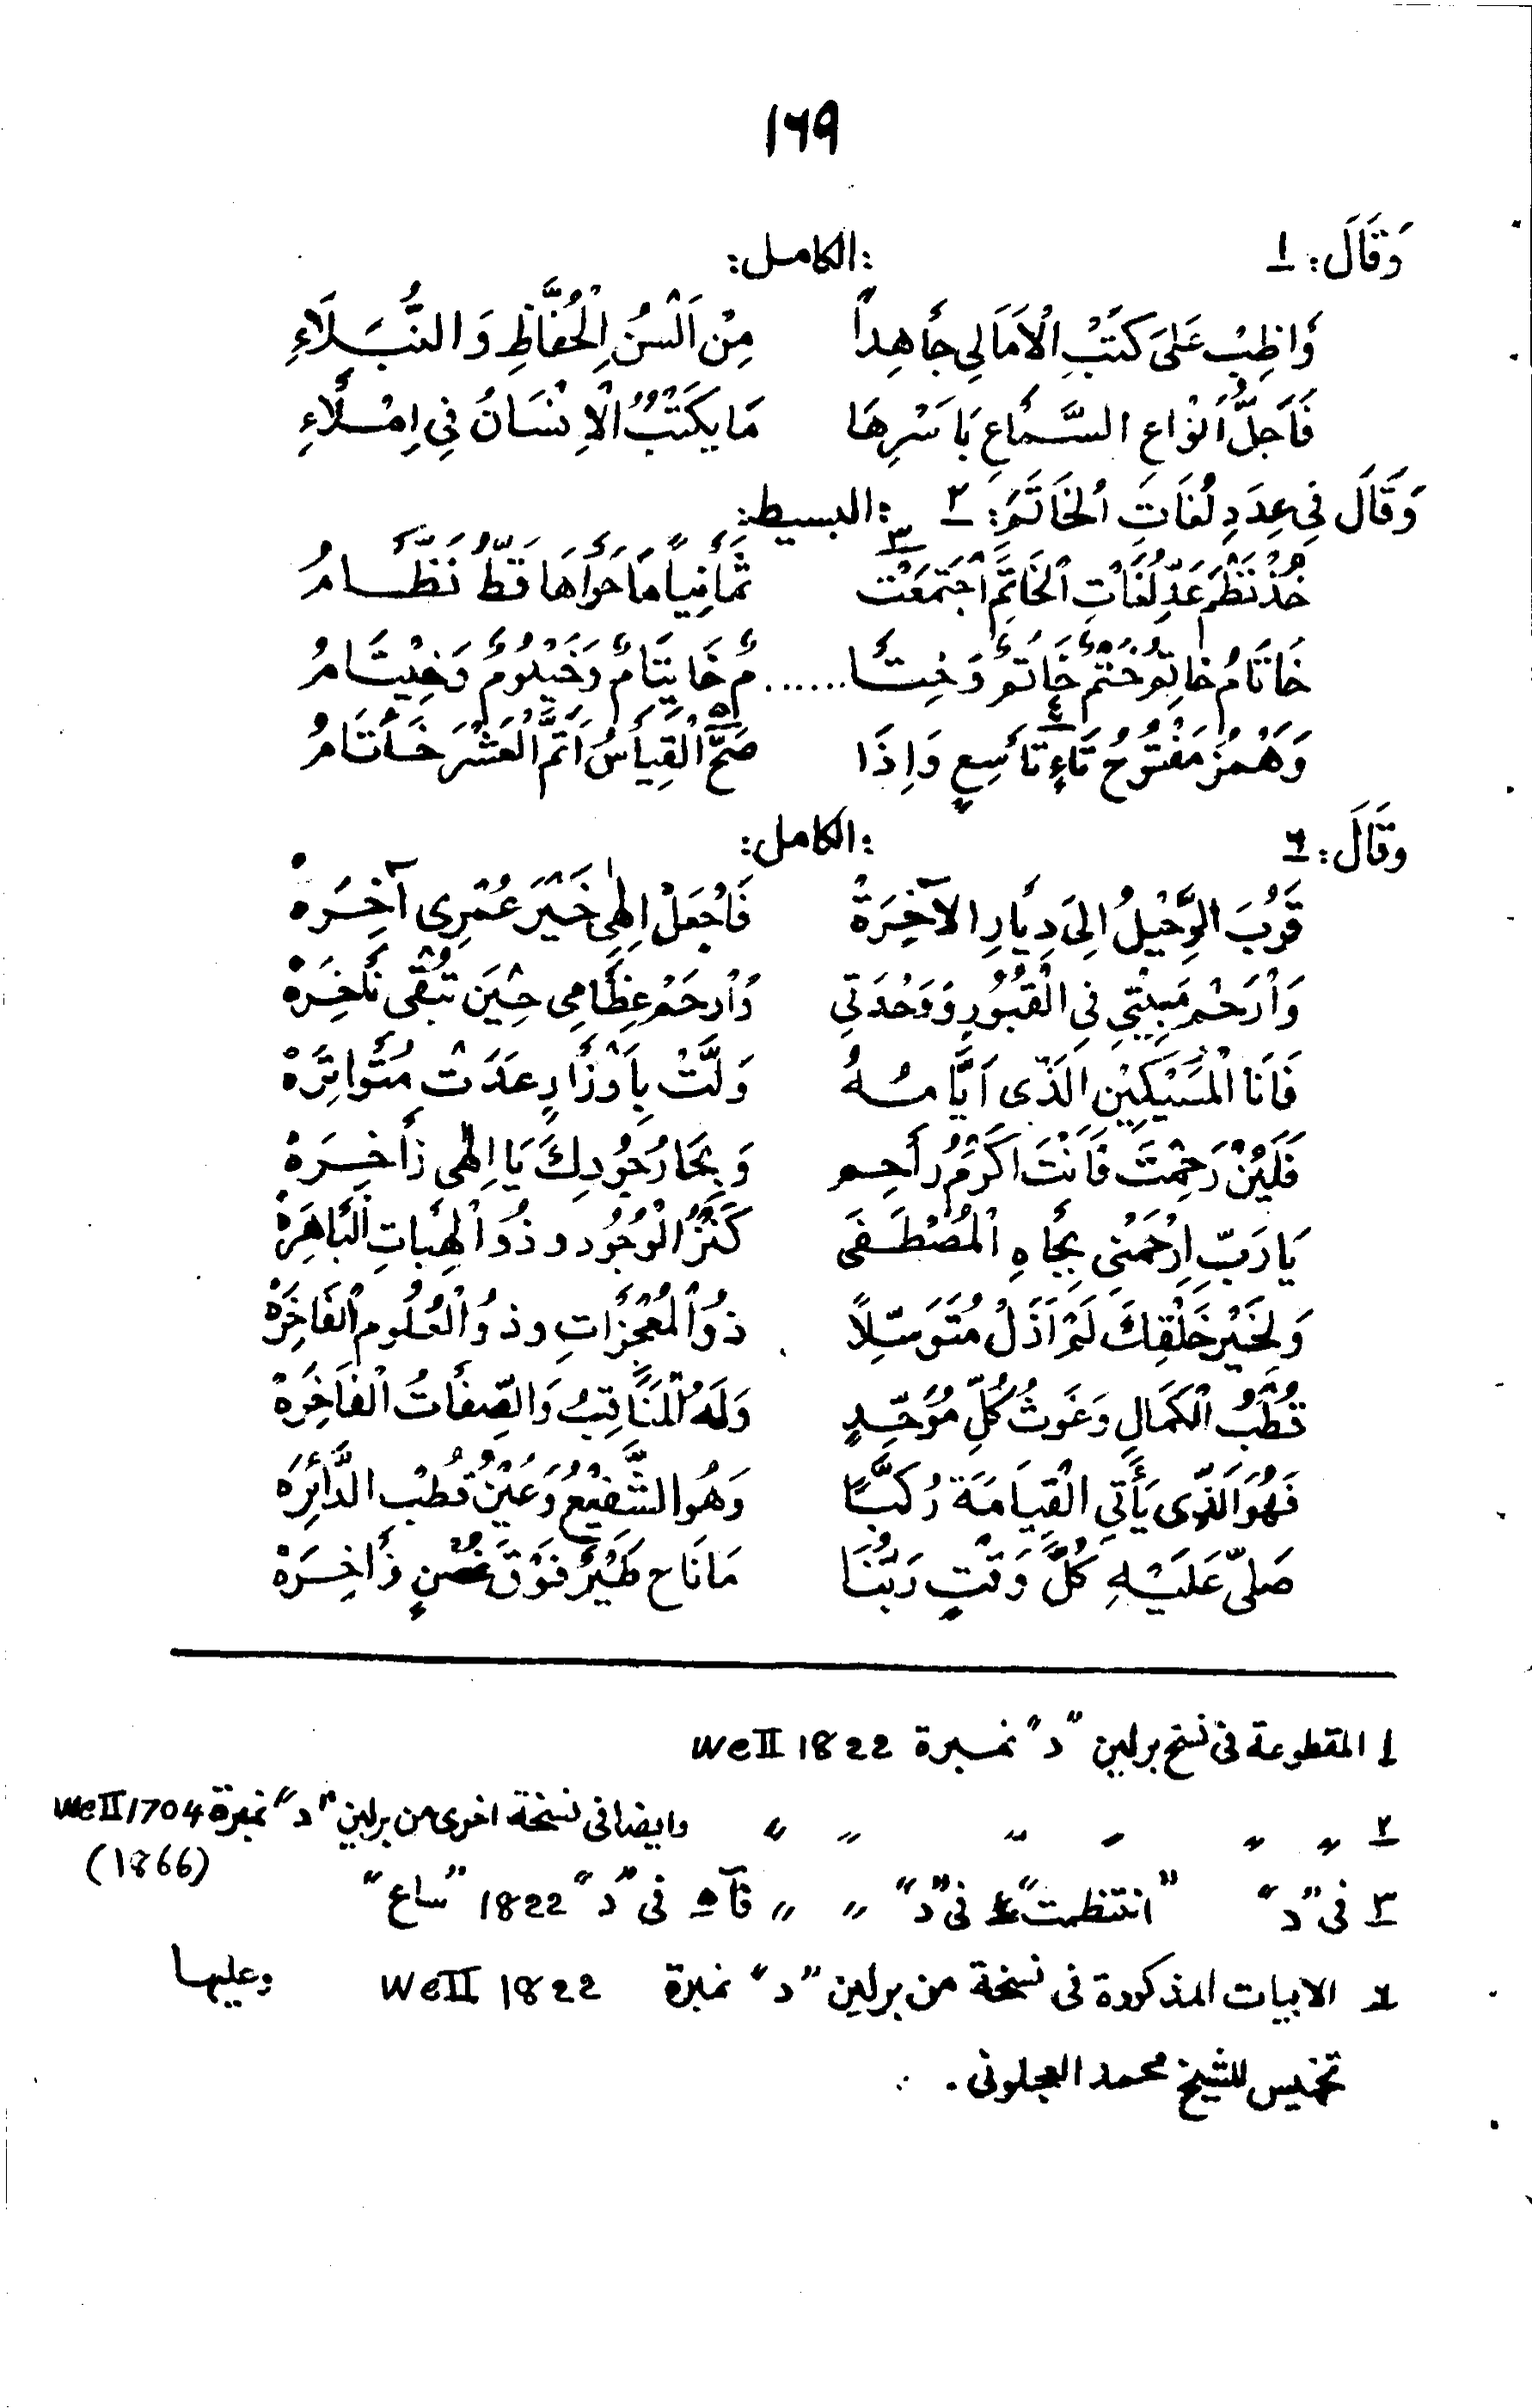 ١٦٩
وَقَالَ: ١ :الكامل:
وَاظِبْ عَلَى كَتْبِ الْاَمَالِي جَاهِداً مِنْ اَلْسُنِ الْحُفَّاظِ وَالنُّبَلَاءِ
فَاَجَلُّ اَنْوَاعِ السَّمَاعِ بِاَسْرِهَا مَا يَكْتُبُ الْاِنْسَانُ فِي اِمْلَاءِ
وَقَالَ فِي عِدَدِ لُغَاتِ الْخَاتَمِ: ٢ :البسيط:
خُذْ نَظْمَ عَدِّ لُغَاتِ الْخَاتَمِ اجْتَمَعَتْ ٣ ثَمَانِياً مَا حَوَاهَا قَطُّ نَظَّامُ
خَاتَامُ خَاتِمُ خَتْمٌ خَاتَمٌ وَخِتَا ...... مٌ خَاتِيَامٌ وَخَيْتُومٌ وَخَيْتَامُ
وَهَمْزُ مَفْتُوحُ تَاءٍ ٤ تَاسِعٍ وَاِذَا صَحَّ ٥ الْقِيَاسُ اَتَمَّ الْعَشْرَ خَأْتَامُ
وقَالَ: ٦ :الكامل:
قَرُبَ الرَّحِيْلُ اِلَى دِيَارِ الآخِرَةْ فَاجْعَلْ اِلٰهِي خَيْرَ عُمْرِى آخِرَهْ
وَارْحَمْ مَبِيْتِي فِي الْقُبُورِ وَوَحْدَتِي وَارحَمْ عِظَامِي حِيْنَ تَبْقَى نَاخِرَهْ
فَاَنَا الْمُسَيْكِيْنُ الَّذِى اَيَّامُهُ وَلَّتْ بِاَوْزَارٍ عَدَتْ مُتَوَاتِرَهْ
فَلَئِنْ رَحِمْتَ فَاَنْتَ اَكْرَمُ رَاحِم وَبِحَارُ جُودِكَ يَا اِلٰهِى زَاخِرَهْ
يَا رَبِّ اِرْحَمْنِي بِجَاهِ الْمُصْطَفَى كَنْزُ الْوُجُود وذُو الْهِبَاتِ الْبَاهِرَهْ
وَبِخَيْرِ خَلْقِكَ لَمْ اَزَلْ مُتَوَسِّلاً ذُو الْمُعْجِزَاتِ وذُو الْعُلُومِ الْفَاخِرَهْ
قُطْبُ الْكَمَالِ وَغَوثُ كُلِّ مُوَحِّدٍ وَلَهُ الْمَنَاقِبُ وَالصِّفَاتُ الْفَاخِرَهْ
فَهُوَ الَّذِى يَأْتِي الْقِيَامَةَ رُكَّبًا وَهُوَ الشَّفِيْعُ وَعَيْنُ قُطْبِ الدَّائِرَهْ
صَلَّى عَلَيْهِ كُلَّ وَقْتٍ رَبُّنَا مَا نَاحَ طَيْرٌ فَوْقَ غُصْنٍ ذَاخِرَهْ
١ المقطوعة فى نسخ برلين "د" نمبرة WeII 1822
٢ " " " " " " " وايضا فى نسخة اخرى من برلين "د" نمبرة WeII 1704
(1866)
٣ فى "د" "انتظمت" ٤ فى "د" " " فآ ٥ فى "د" 1822 "ساع"
٦ الابيات المذكورة فى نسخة من برلين "د" نمبرة WeII 1822 وعليها
تخميس للشيخ محمد العجلونى.